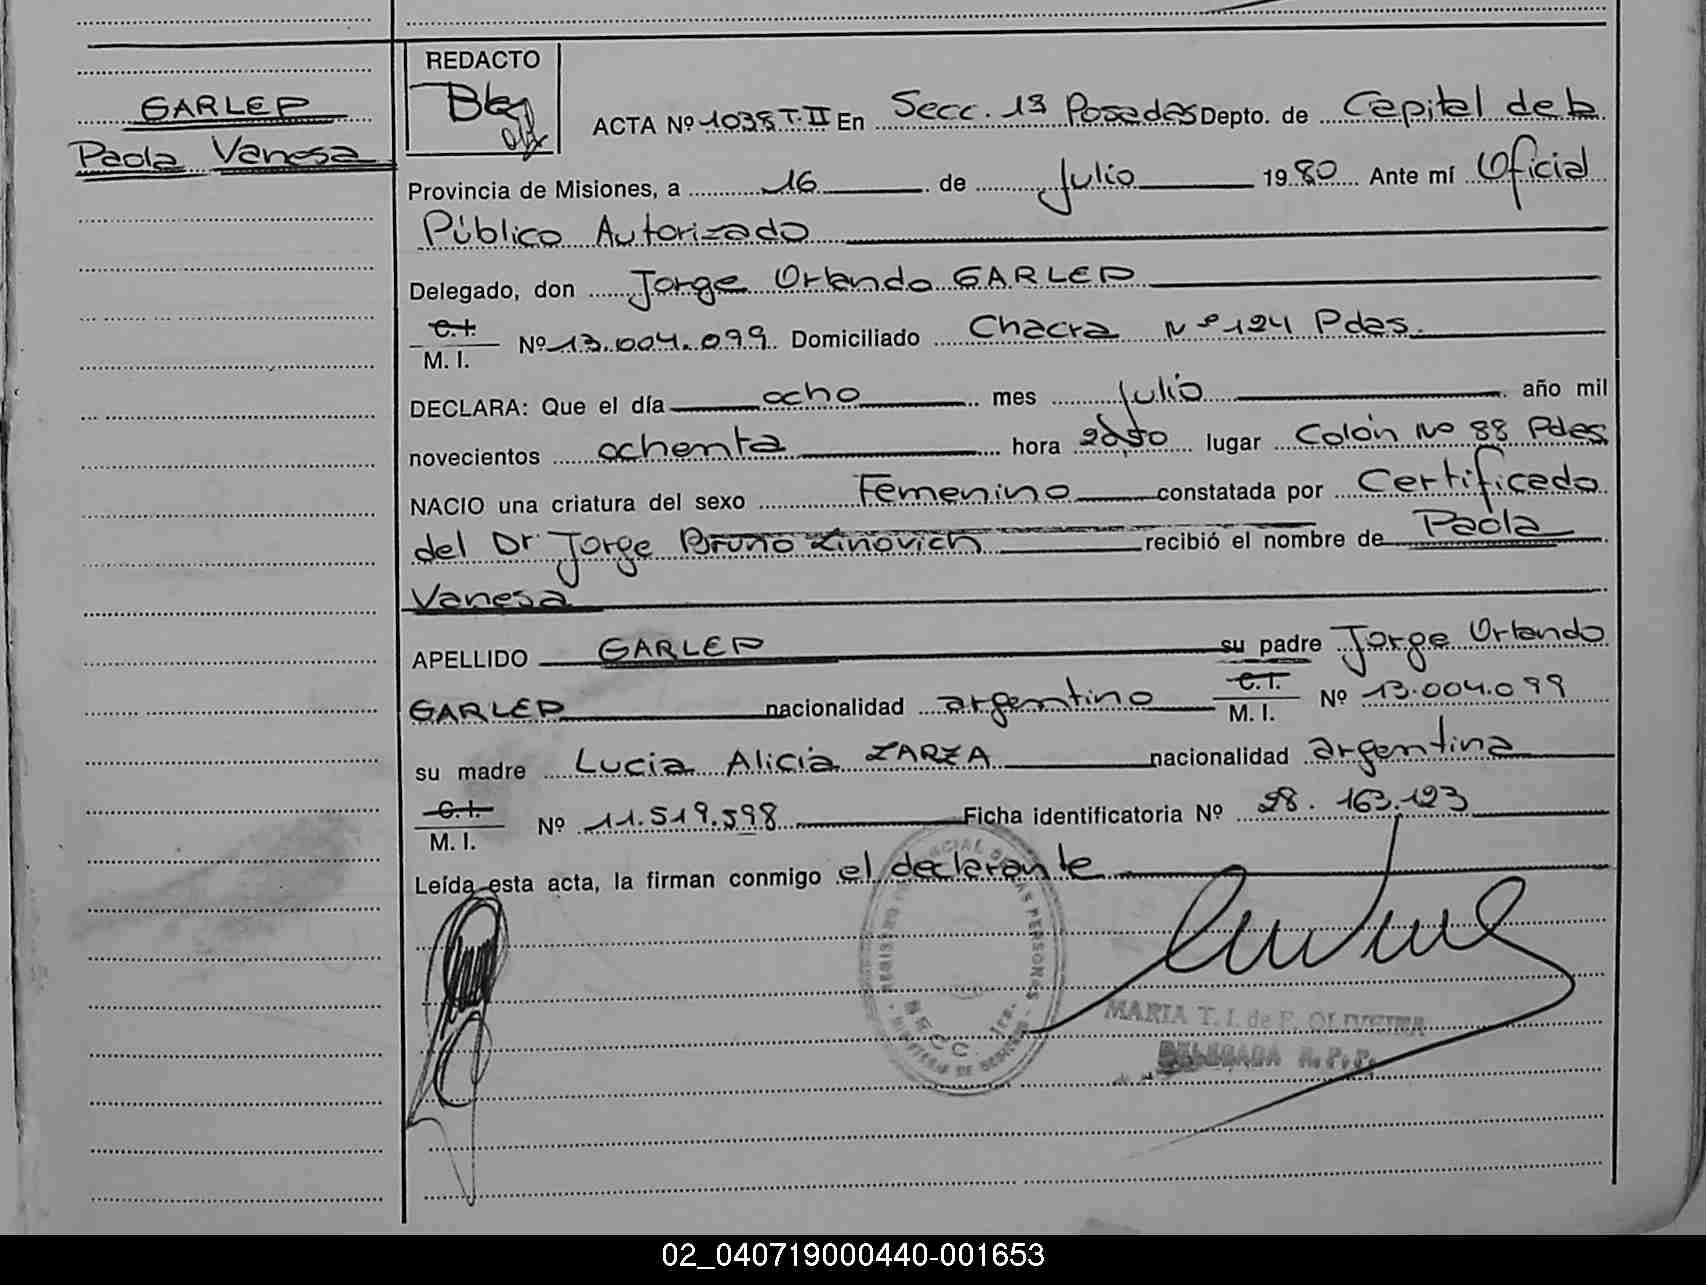 GARLEP
Paola Vanesa
REDACTO
ACTA Nº 1038 T-II En Secc. 1ª Posadas Depto. de Capital de la
Provincia de Misiones, a 16 de Julio 1980 Ante mí Oficial
Público Autorizado
Delegado, don Jorge Orlando GARLEP
C.I.
M. I. Nº 13.004.099 Domiciliado Chacra Nº 124 Pdas.
DECLARA: Que el día ocho mes julio año mil
novecientos ochenta hora lugar Colón Nº 88 Pdas
NACIO una criatura del sexo Femenino constatada por Certificado
del Dr Jorge Bruno Zinovich recibió el nombre de Paola
Vanesa
APELLIDO GARLEP su padre Jorge Orlando
GARLEP nacionalidad argentino C.I. M. I. Nº 13.004.099
su madre Lucia Alicia ZARZA nacionalidad argentina
C.I.
M. I. Nº 11.519.598 Ficha identificatoria Nº 28.163.123
Leída esta acta, la firman conmigo el declarante
REGISTRO PROVINCIAL DE LAS PERSONAS
SECC. 1ra.
MINISTERIO DE GOBIERNO
MARIA T. I. de F. OLIVEIRA
DELEGADA R. P. P.
02_040719000440-001653